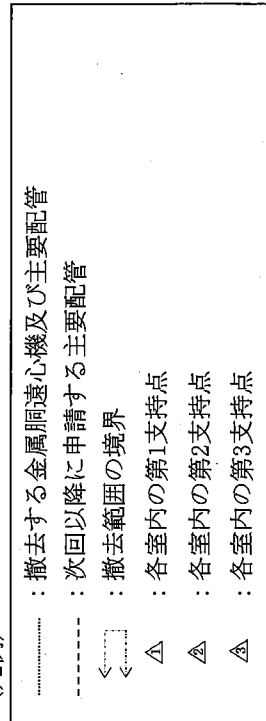 ：撤去する金属胴遠心機及び主要配管
：次回以降に申請する主要配管
：撤去範囲の境界
1：各室内の第1支持点
2：各室内の第2支持点
3：各室内の第3支持点